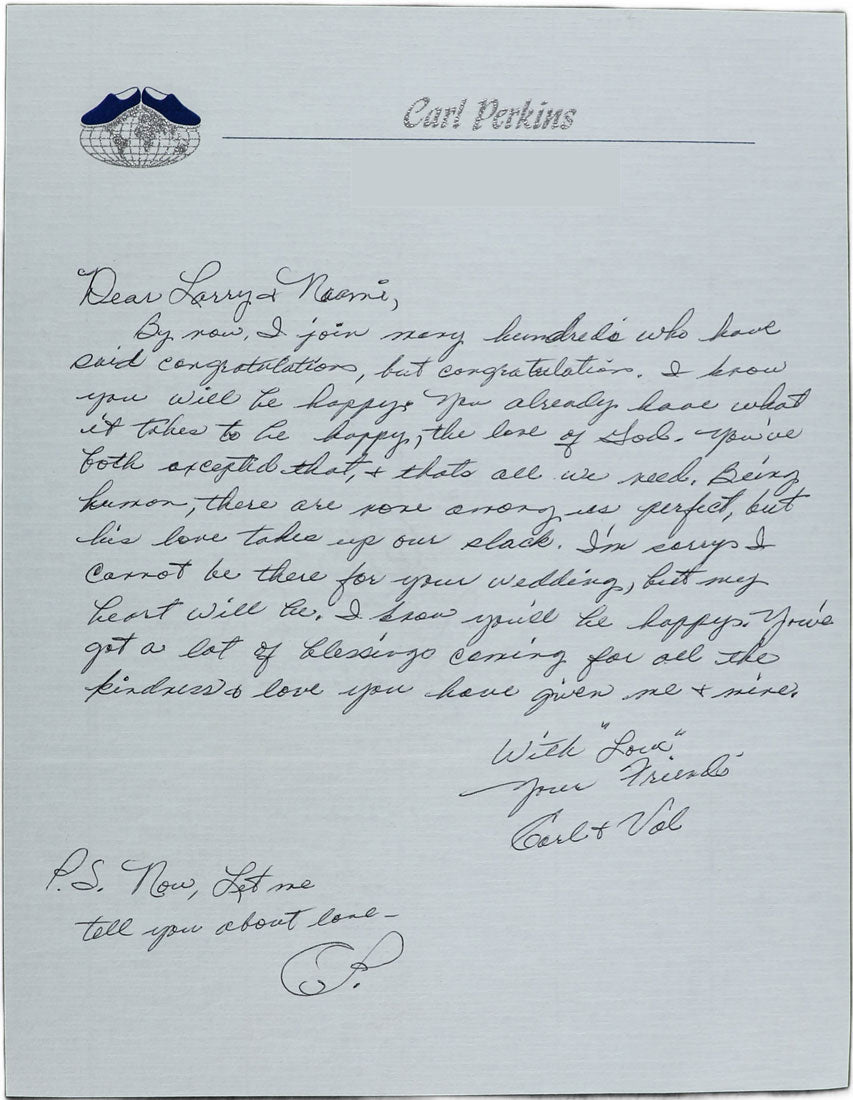 Carl Perkins
Dear Larry & Naomi,
By now, I join many hundreds who have
said congratulations, but congratulations. I know
you will be happy. You already have what
it takes to be happy, the love of God. You've
both excepted that, & thats all we need. Being
human, there are none among us perfect, but
his love takes up our slack. I'm sorry I
cannot be there for your wedding, but my
heart will be. I know you'll be happy. You've
got a lot of blessings coming for all the
kindness & love you have given me & mine.
With "Love"
Your Friends
Carl & Val
P.S. Now, Let me
tell you about love –
CP.